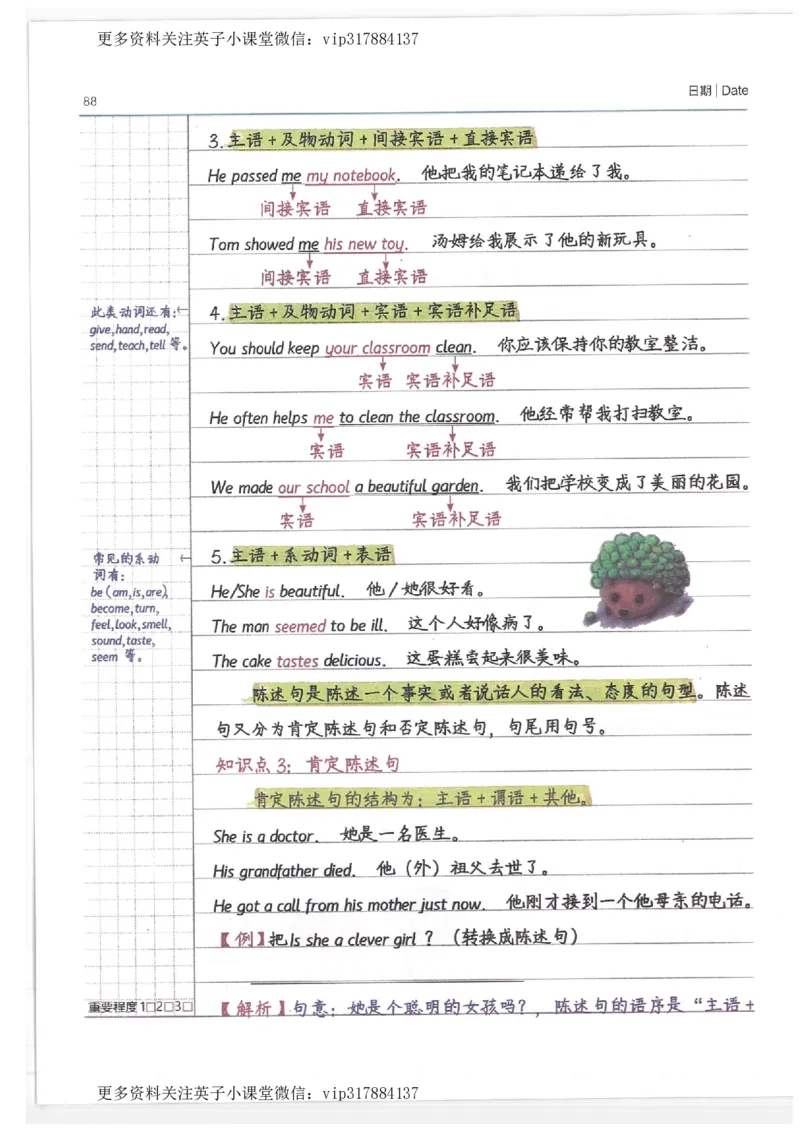 更多资料关注英子小课堂微信：vip317884137
88
日期 | Date
3. 主语+及物动词+间接宾语+直接宾语
He passed me my notebook. 他把我的笔记本递给了我。
间接宾语 直接宾语
Tom showed me his new toy. 汤姆给我展示了他的新玩具。
间接宾语 直接宾语
此类动词还有：
give, hand, read,
send, teach, tell 等。
4. 主语+及物动词+宾语+宾语补足语
You should keep your classroom clean. 你应该保持你的教室整洁。
宾语 宾语补足语
He often helps me to clean the classroom. 他经常帮我打扫教室。
宾语 宾语补足语
We made our school a beautiful garden. 我们把学校变成了美丽的花园。
宾语 宾语补足语
常见的系动
词有：
be (am, is, are),
become, turn,
feel, look, smell,
sound, taste,
seem 等。
5. 主语+系动词+表语
He/She is beautiful. 他/她很好看。
The man seemed to be ill. 这个人好像病了。
The cake tastes delicious. 这蛋糕尝起来很美味。
陈述句是陈述一个事实或者说话人的看法、态度的句型。陈述
句又分为肯定陈述句和否定陈述句，句尾用句号。
知识点 3：肯定陈述句
肯定陈述句的结构为：主语+谓语+其他。
She is a doctor. 她是一名医生。
His grandfather died. 他（外）祖父去世了。
He got a call from his mother just now. 他刚才接到一个他母亲的电话。
【例】把Is she a clever girl ？（转换成陈述句）
重要程度 1□2□3□
【解析】句意：她是个聪明的女孩吗？，陈述句的语序是“主语+
更多资料关注英子小课堂微信：vip317884137